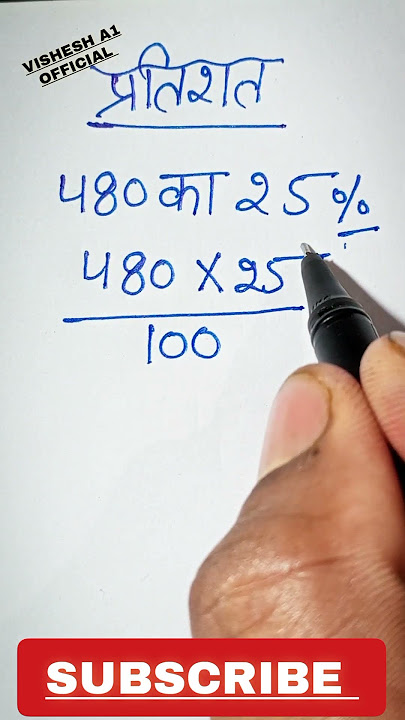 VISHESH A1
OFFICIAL
प्रतिशत
480 का 25 %
480 X 25
100
SUBSCRIBE